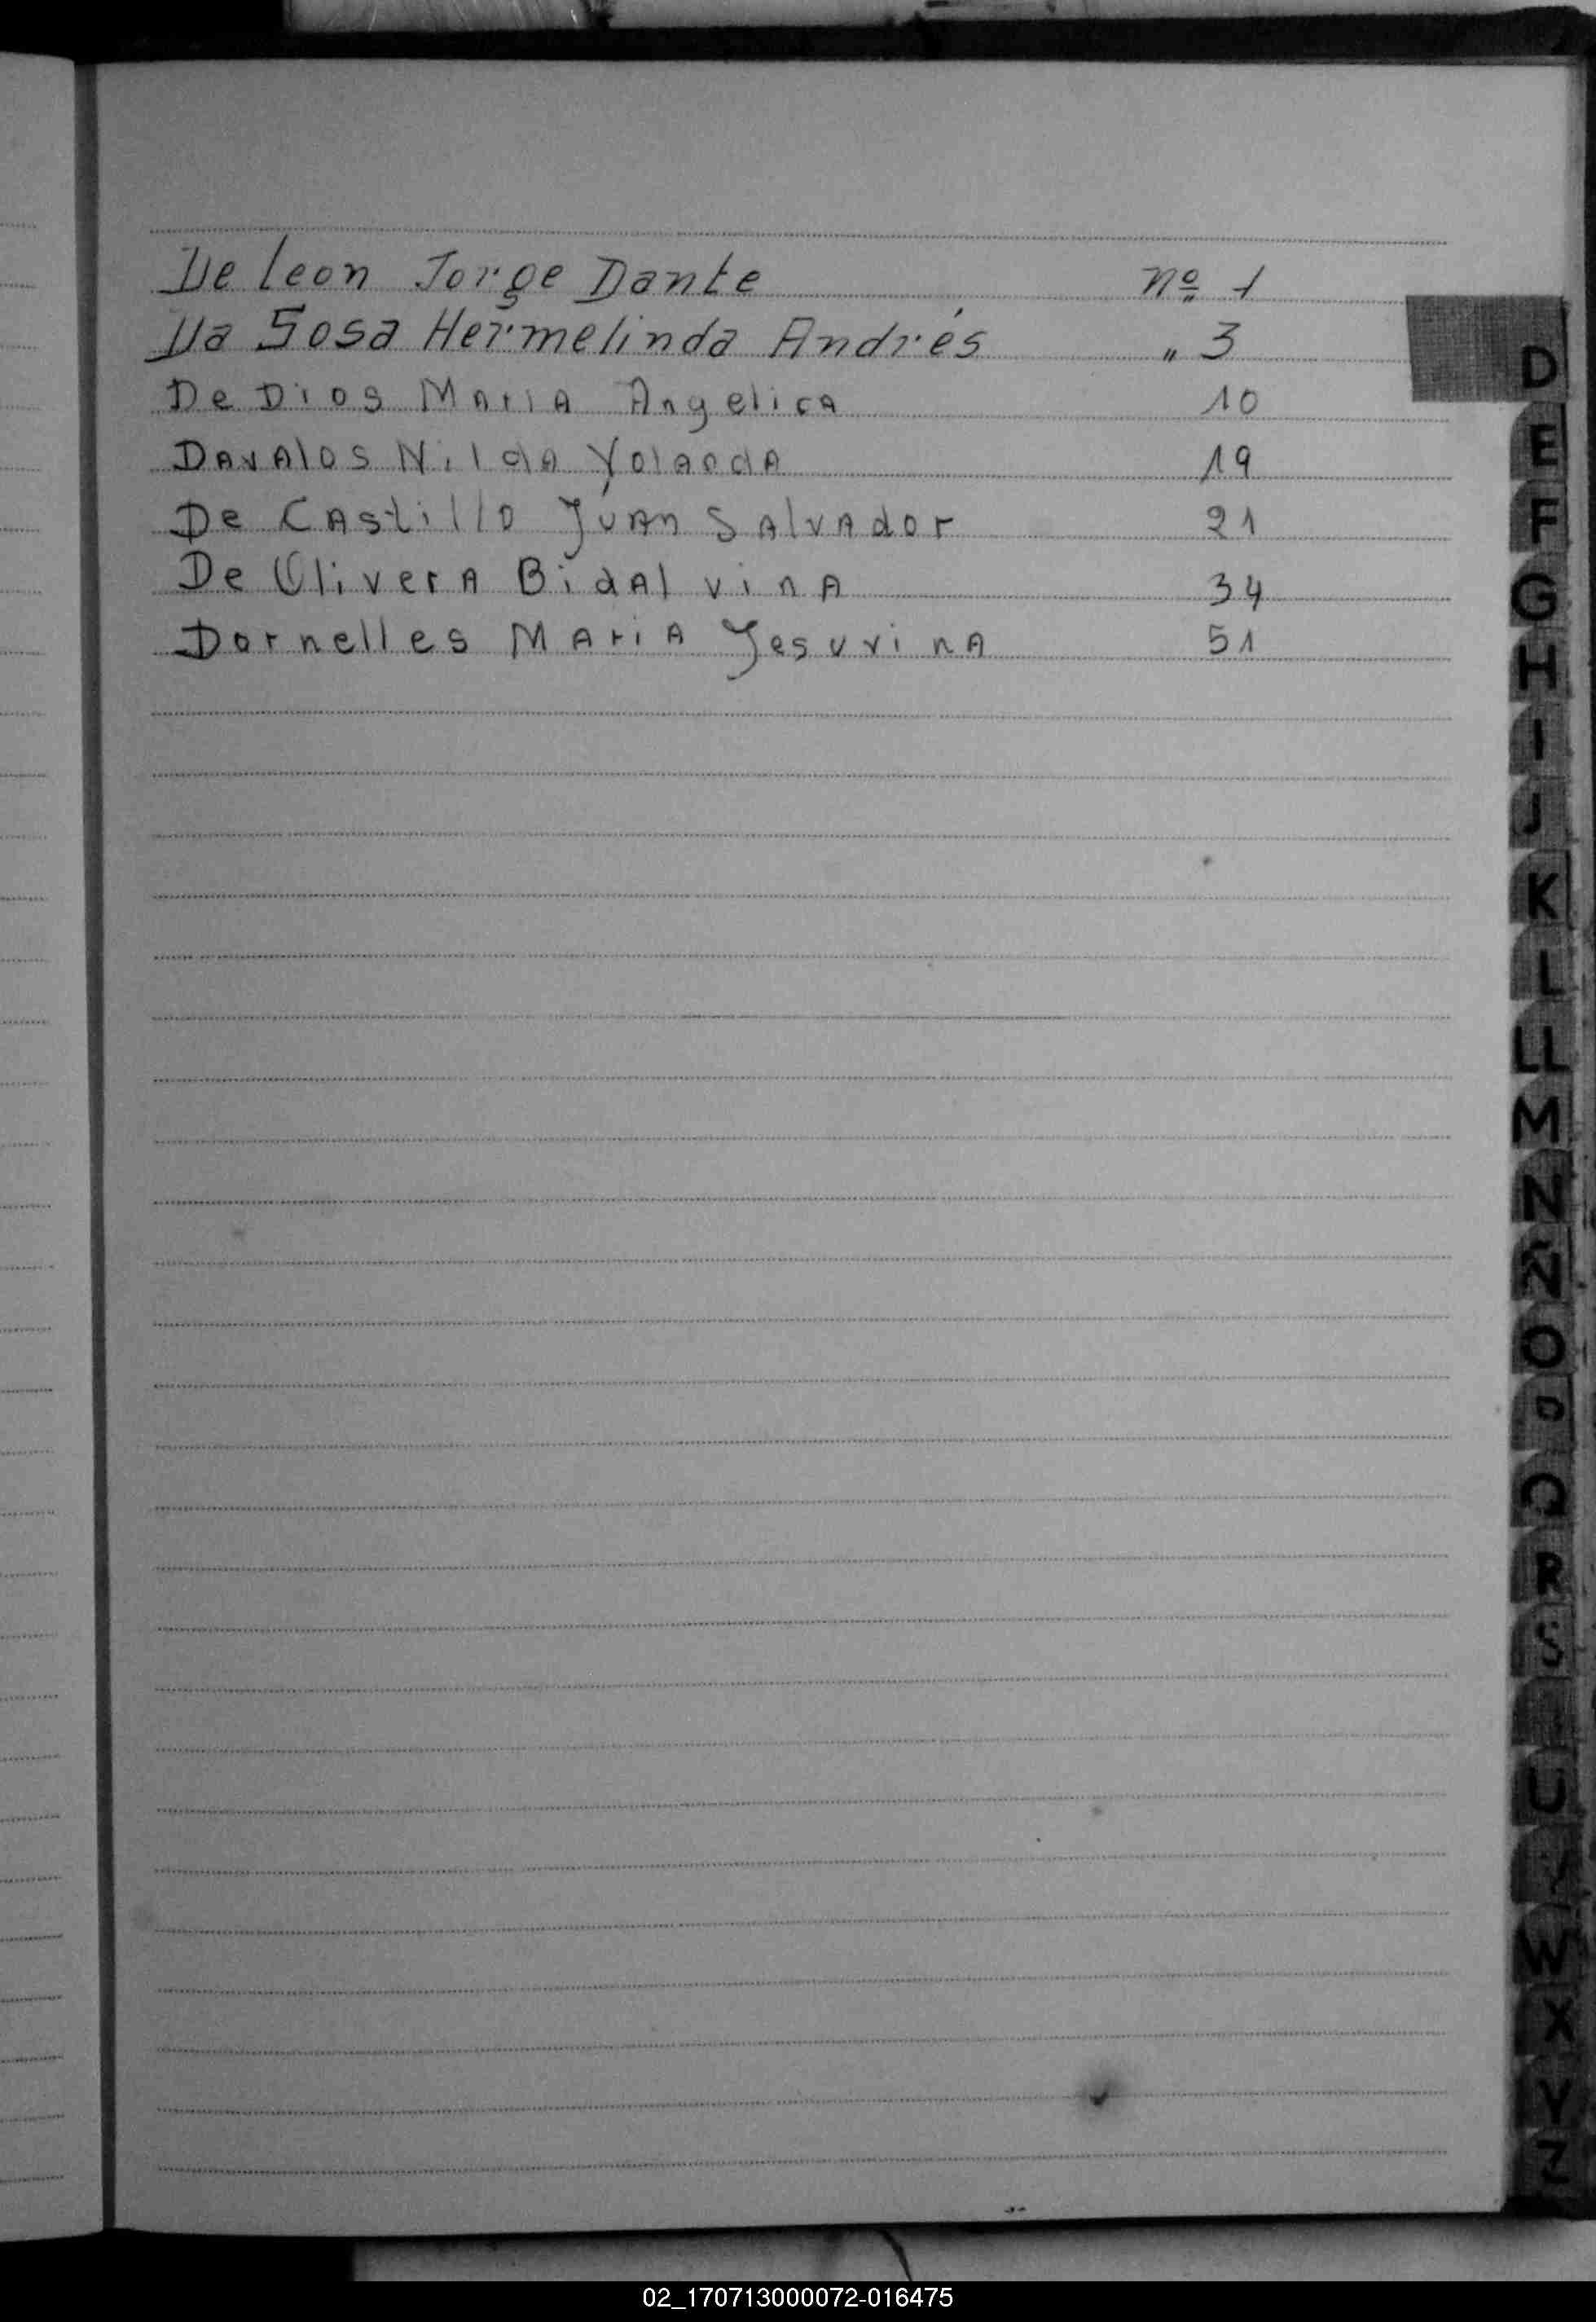 De Leon Jorge Dante nº 1
Da Sosa Hermelinda Andrés " 3
De Dios Maria Angelica 10
Davalos Nilda Yolanda 19
De Castillo Juan Salvador 21
De Olivera Bidalvina 34
Dornelles Maria Jesuvina 51
D
E
F
G
H
I
J
K
L
LL
M
N
Ñ
O
P
Q
R
S
U
V
W
X
Y
Z
02_170713000072-016475